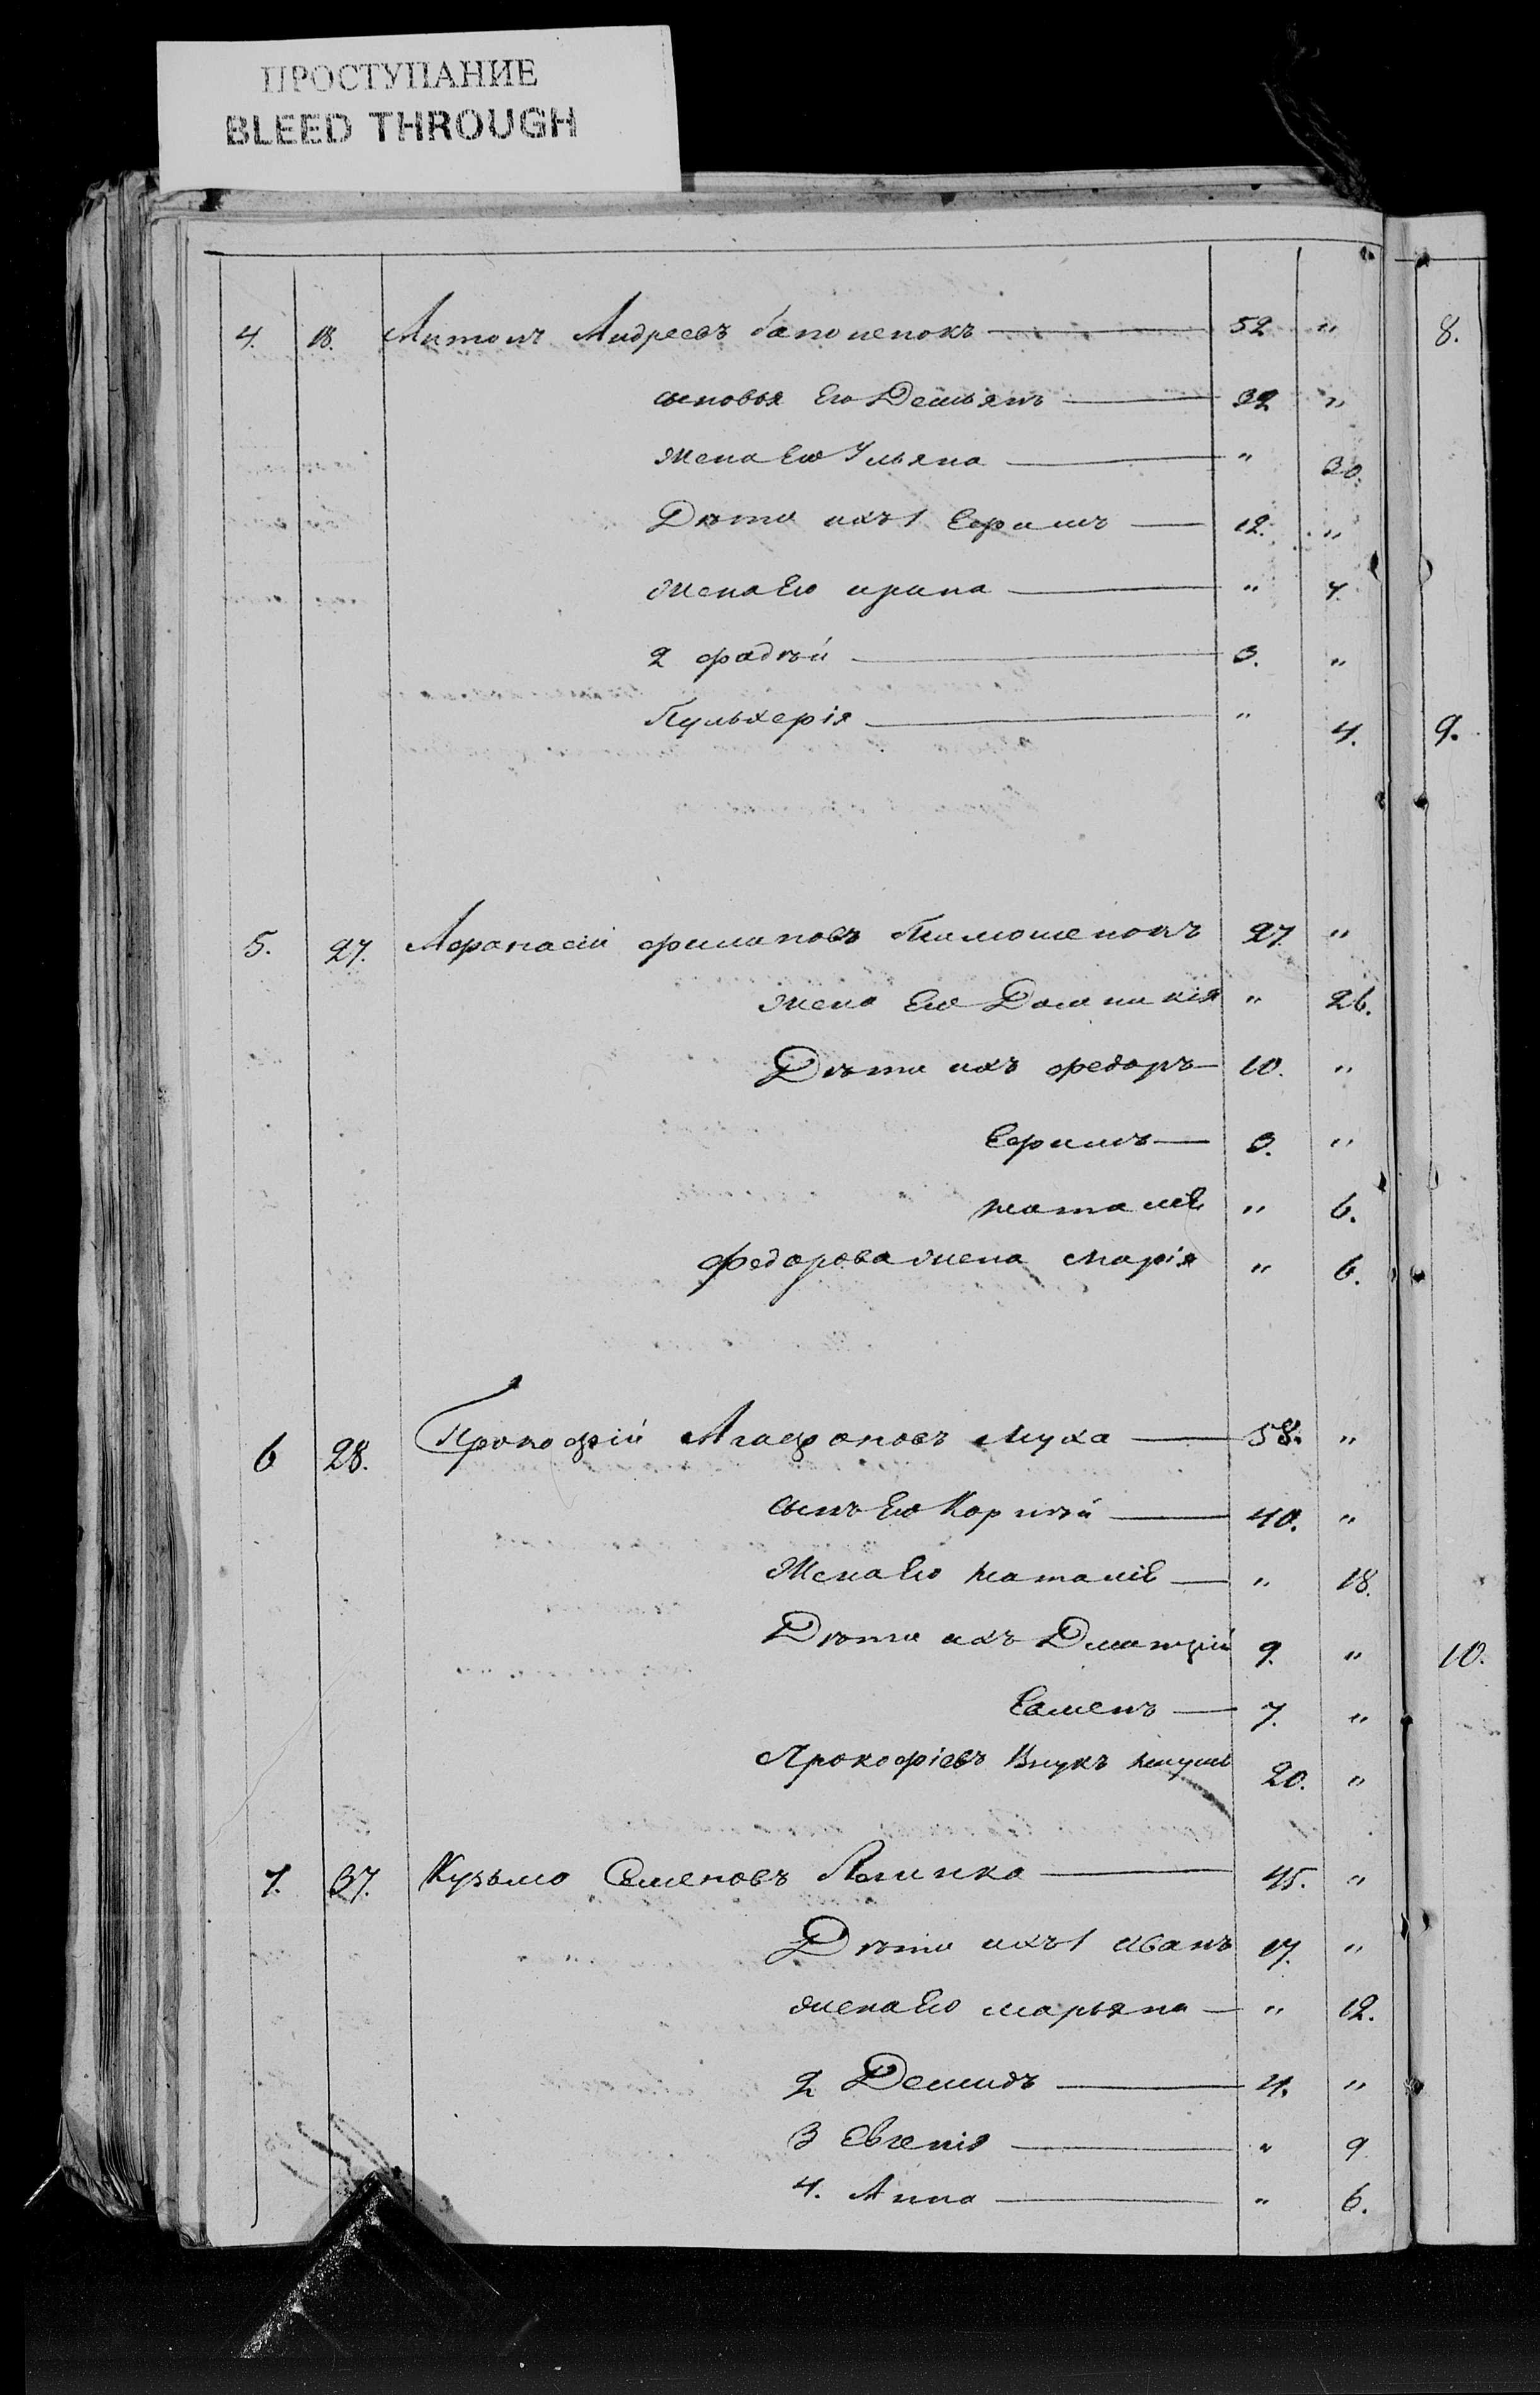 ПРОСТУПАНИЕ
BLEED THROUGH
4. 18. Антонъ Андреевъ Гапоненокъ 52 "
сыновья Его Демьянъ 32 "
жена Его Ульяна " 30.
Дѣти ихъ 1 Ефимъ 12. "
Жена Его ирина " 7.
2 фадѣй 3. "
Пульхерія " 4.
5. 27. Афанасій филиповъ Тимошенокъ 27. "
жена Его Домникія " 26.
Дѣти ихъ федоръ 10. "
Ефимъ 3. "
наталiѣ " 6.
федорова жена марія " 6.
6 28. Прокофій Агафоновъ муха 58. "
сынъ Его Корнѣй 40. "
Жена Его наталiѣ " 18.
Дѣти ихъ Дмитрій 9. "
Семенъ 7. "
Прокофіевъ Внукъ 20. "
7. 37. Кузьмо Семеновъ 45. "
Дѣти ихъ 1 иванъ 17. "
жена Его марьяна " 12.
2 Демидъ 4. "
3 Евгенія " 9
4. Анна " 6.
8.
9.
10.